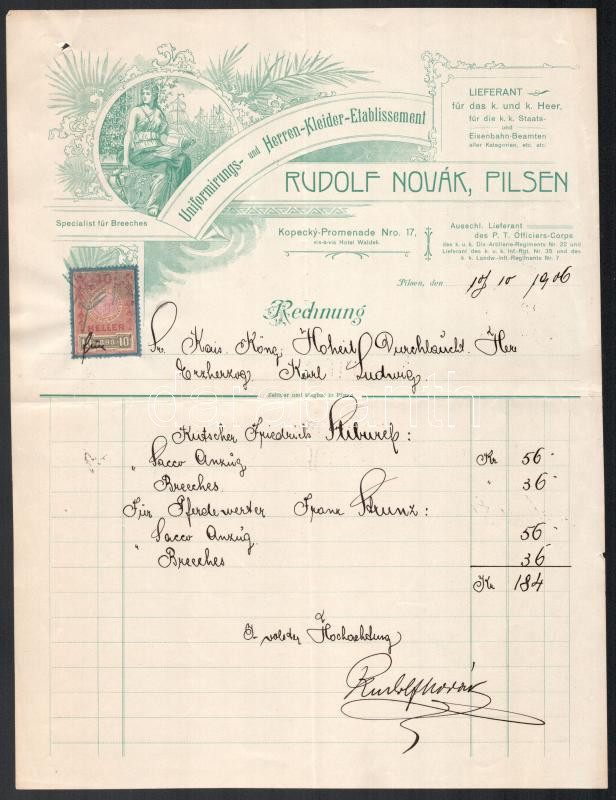 Uniformirungs- und Herren-Kleider-Etablissement
LIEFERANT
für das k. und k. Heer,
für die k. k. Staats-
und
Eisenbahn-Beamten
aller Kategorien, etc. etc.
RUDOLF NOVÁK, PILSEN
Specialist für Breeches
Kopecký-Promenade Nro. 17,
vis-à-vis Hotel Waldek.
Ausschl. Lieferant
des P. T. Officiers-Corps
des k. u. k. Div.-Artillerie-Regiments Nr. 22 und
Lieferant des k. u. k. Inf.-Rgt. Nr. 35 und des
k. k. Landw.-Inft.-Regiments Nr. 7
Pilsen, den 10/10 1906
10
HELLER
1898 10
Rechnung
Sr. Kais. Köng. Hoheit Durchlaucht Herr
Erzherzog Karl Ludwig
in Pilsen
Kutscher Friedrich :
" Sacco Anzüg Kr 56
Breeches " 36
Für Pferdewerter Franz Strunz :
" Sacco Anzüg 56
Breeches 36
Kr 184
Hochachtung
Rudolf Novák